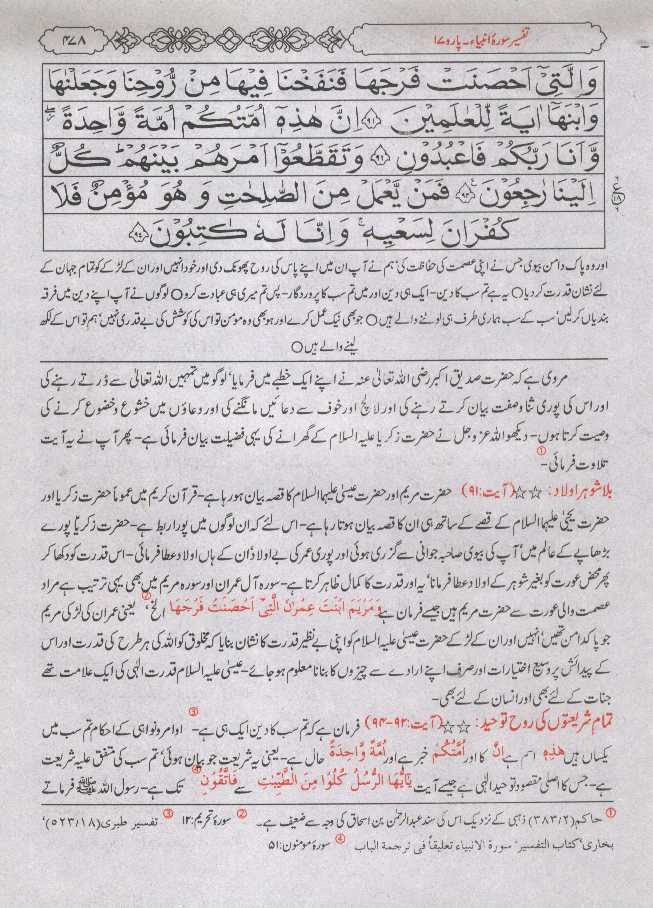 تفسیر سورۂ انبیاء۔ پارہ ۱۷
۴۷۸
وَالَّتِیْۤ اَحْصَنَتْ فَرْجَهَا فَنَفَخْنَا فِیْهَا مِنْ رُّوْحِنَا وَجَعَلْنٰهَا
وَابْنَهَاۤ اٰیَةً لِّلْعٰلَمِیْنَ ﴿۹۱﴾ اِنَّ هٰذِهٖۤ اُمَّتُكُمْ اُمَّةً وَّاحِدَةً ۖ
وَّاَنَا رَبُّكُمْ فَاعْبُدُوْنِ ﴿۹۲﴾ وَتَقَطَّعُوْۤا اَمْرَهُمْ بَیْنَهُمْ ؕ كُلٌّ
اِلَیْنَا رٰجِعُوْنَ ﴿۹۳﴾ فَمَنْ یَّعْمَلْ مِنَ الصّٰلِحٰتِ وَ هُوَ مُؤْمِنٌ فَلَا
كُفْرَانَ لِسَعْیِهٖ ۚ وَاِنَّا لَهٗ كٰتِبُوْنَ ﴿۹۴﴾
اور وہ پاک دامن بیوی جس نے اپنی عصمت کی حفاظت کی ہم نے آپ ان میں اپنے پاس کی روح پھونک دی اور خود انہیں اور ان کے لڑکے کو تمام جہان کے
لئے نشان قدرت کر دیا ○ یہ ہے تم سب کا دین۔ ایک ہی دین اور میں تم سب کا پروردگار۔ پس تم میری ہی عبادت کرو ○ لوگوں نے آپ اپنے دین میں فرقہ
بندیاں کر لیں' سب کے سب ہماری طرف ہی لوٹنے والے ہیں ○ جو بھی نیک عمل کرے اور ہو بھی وہ مومن تو اس کی کوشش کی بے قدری نہیں' ہم تو اس کے لکھ
لینے والے ہیں ○
مروی ہے کہ حضرت صدیق اکبر رضی اللہ تعالیٰ عنہ نے اپنے ایک خطبے میں فرمایا' لوگو میں تمہیں اللہ تعالیٰ سے ڈرتے رہنے کی
اور اس کی پوری ثنا و صفت بیان کرتے رہنے کی اور لالچ اور خوف سے دعائیں مانگنے کی اور دعاؤں میں خشوع و خضوع کرنے کی
وصیت کرتا ہوں۔ دیکھو اللہ عزوجل نے حضرت زکریا علیہ السلام کے گھرانے کی یہی فضیلت بیان فرمائی ہے۔ پھر آپ نے یہ آیت
تلاوت فرمائی۔ ①
بلا شوہر اولاد: ☆☆ (آیت:۹۱) حضرت مریم اور حضرت عیسیٰ علیہما السلام کا قصہ بیان ہو رہا ہے۔ قرآن کریم میں عموماً حضرت زکریا اور
حضرت یحییٰ علیہما السلام کے قصے کے ساتھ ہی ان کا قصہ بیان ہوتا رہا ہے۔ اس لئے کہ ان لوگوں میں پورا ربط ہے۔ حضرت زکریا پورے
بڑھاپے کے عالم میں' آپ کی بیوی صاحبہ جوانی سے گزری ہوئی اور پوری عمر کی بے اولاد ان کے ہاں اولاد عطا فرمائی۔ اس قدرت کو دکھا کر
پھر محض عورت کو بغیر شوہر کے اولاد عطا فرمانا' یہ اور قدرت کا کمال ظاہر کرتا ہے۔ سورہ آل عمران اور سورہ مریم میں بھی یہی ترتیب ہے مراد
عصمت والی عورت سے حضرت مریم ہیں جیسے فرمان ہے وَمَرْیَمَ ابْنَتَ عِمْرٰنَ الَّتِیْۤ اَحْصَنَتْ فَرْجَهَا الخ' ② یعنی عمران کی لڑکی مریم
جو پاک دامن تھیں' انہیں اور ان کے لڑکے حضرت عیسیٰ علیہ السلام کو اپنی بے نظیر قدرت کا نشان بنایا کہ مخلوق کو اللہ کی ہر طرح کی قدرت اور اس
کے پیدائش پر وسیع اختیارات اور صرف اپنے ارادے سے چیزوں کا بنانا معلوم ہو جائے۔ عیسیٰ علیہ السلام قدرت الٰہی کی ایک علامت تھے
جنات کے لئے بھی اور انسان کے لئے بھی۔
تمام شریعتوں کی روح توحید: ☆☆ (آیت:۹۲-۹۴) فرمان ہے کہ تم سب کا دین ایک ہی ہے۔ ③ اوامر و نواہی کے احکام تم سب میں
یکساں ہیں هٰذِهٖ اسم ہے اِنَّ کا اور اُمَّتُكُمْ خبر ہے اور اُمَّةً وَّاحِدَةً حال ہے۔ یعنی یہ شریعت جو بیان ہوئی' تم سب کی متفق علیہ شریعت
ہے۔ جس کا اصلی مقصود توحید الٰہی ہے جیسے آیت یٰۤاَیُّهَا الرُّسُلُ كُلُوْا مِنَ الطَّیِّبٰتِ سے فَاتَّقُوْنِ ④ تک ہے۔ رسول اللہ ﷺ فرماتے
① حاکم (۳۸۳/۲) ذہبی کے نزدیک اس کی سند عبدالرحمٰن بن اسحاق کی وجہ سے ضعیف ہے۔ ② سورۂ تحریم:۱۲ ③ تفسیر طبری (۵۲۳/۱۸)'
بخاری' کتاب التفسیر' سورۃ الانبیاء تعلیقاً فی ترجمۃ الباب ④ سورۂ مومنون:۵۱